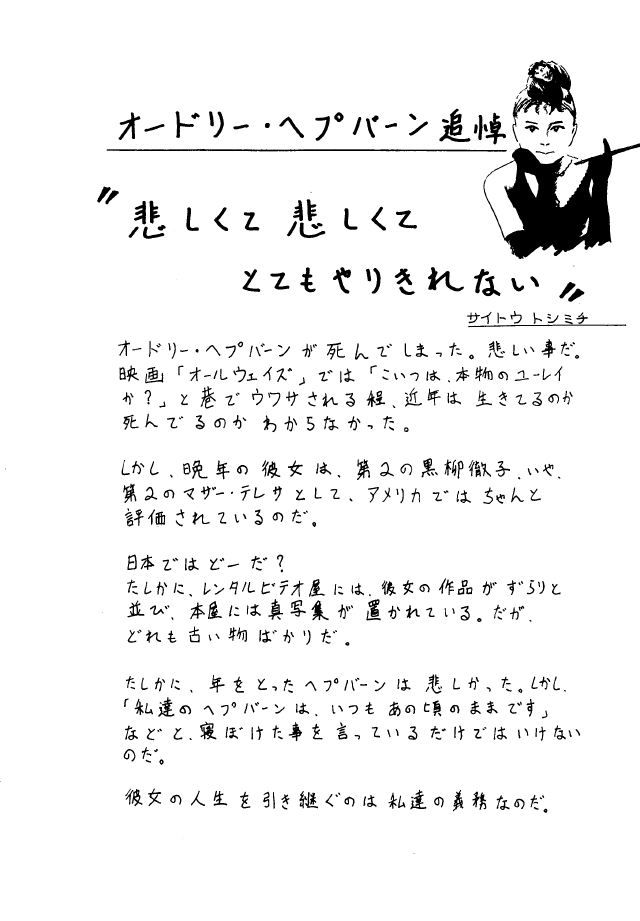 オードリー・ヘプバーン追悼
"悲しくて 悲しくて
とてもやりきれない"
サイトウ トシミチ
オードリー・ヘプバーンが死んでしまった。悲しい事だ。
映画「オールウェイズ」では「こいつは、本物のユーレイ
か?」と巷でウワサされる程、近年は生きてるのか
死んでるのかわからなかった。
しかし、晩年の彼女は、第2の黒柳徹子、いや、
第2のマザー・テレサとして、アメリカではちゃんと
評価されているのだ。
日本ではどーだ?
たしかに、レンタルビデオ屋には、彼女の作品がずらりと
並び、本屋には真写集が置かれている。だが、
どれも古い物ばかりだ。
たしかに、年をとったヘプバーンは悲しかった。しかし、
「私達のヘプバーンは、いつもあの頃のままです」
などと、寝ぼけた事を言っているだけではいけない
のだ。
彼女の人生を引き継ぐのは私達の義務なのだ。